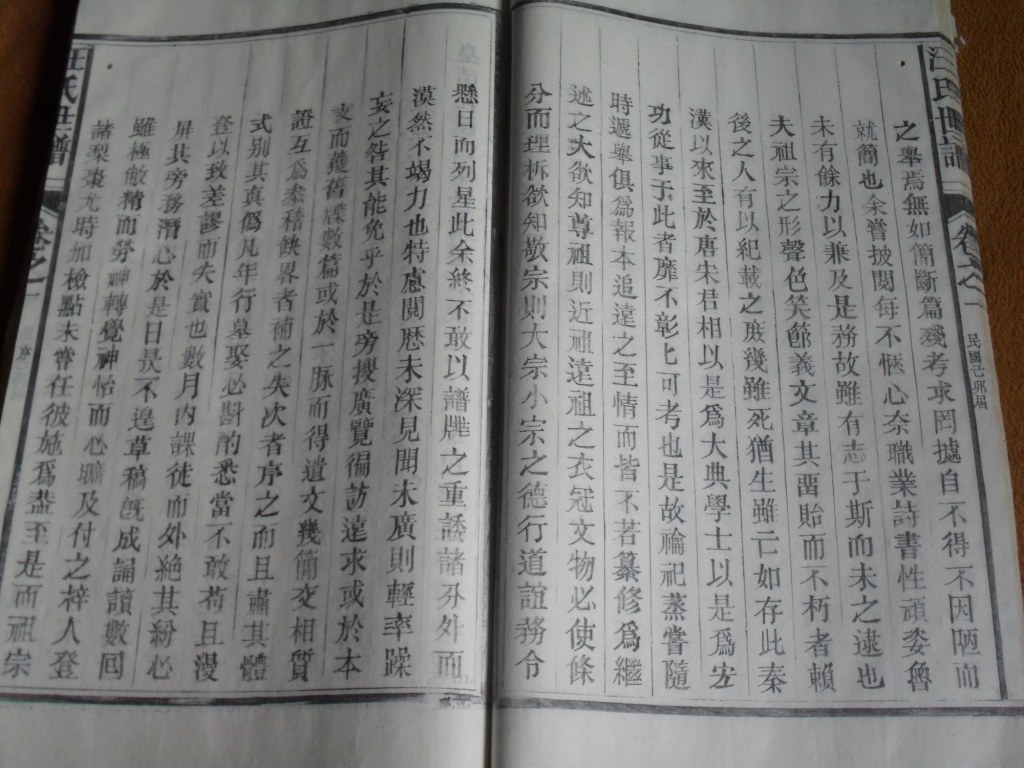 汪氏世譜 卷之一 民國己卯届
之舉焉無如簡斷篇殘考求罔據自不得不因陋而
就簡也余嘗披閱每不愜心奈職業詩書性頑姿魯
未有餘力以兼及是務故雖有志于斯而未之逮也
夫祖宗之形聲色笑節義文章其畱貽而不朽者賴
後之人有以紀載之庶幾雖死猶生雖亡如存此秦
漢以來至於唐朱君相以是爲大典學士以是爲宏
功從事于此者靡不彰彰可考也是故禴祀蒸嘗隨
時遞舉俱爲報本追遠之至情而皆不若纂修爲繼
述之大欲知尊祖則近祖遠祖之衣冠文物必使條
分而理柝欲知敬宗則大宗小宗之德行道誼務令
懸日而列星此余終不敢以譜牒之重諉諸分外而
漠然不竭力也特慮閱歴未深見聞未廣則輕率躁
妄之咎其能免乎於是旁搜廣覽徧訪遠求或於本
支而獲舊牒數篇或於一脈而得遺文幾簡交相質
證互爲叅稽缺畧者補之失次者序之而且肅其體
式别其真僞凡年行墓娶必斟酌悉當不敢苟且漫
登以致差謬而失實也數月内課徒而外絶其紛心
屏其旁務潛心於是日昃不遑草稿旣成誦讀數囘
雖極敝精而勞神轉覺神怡而心曠及付之梓人登
諸梨棗尤時加檢點未嘗任彼施爲葢至是而祖宗
汪氏世譜 卷之一 序